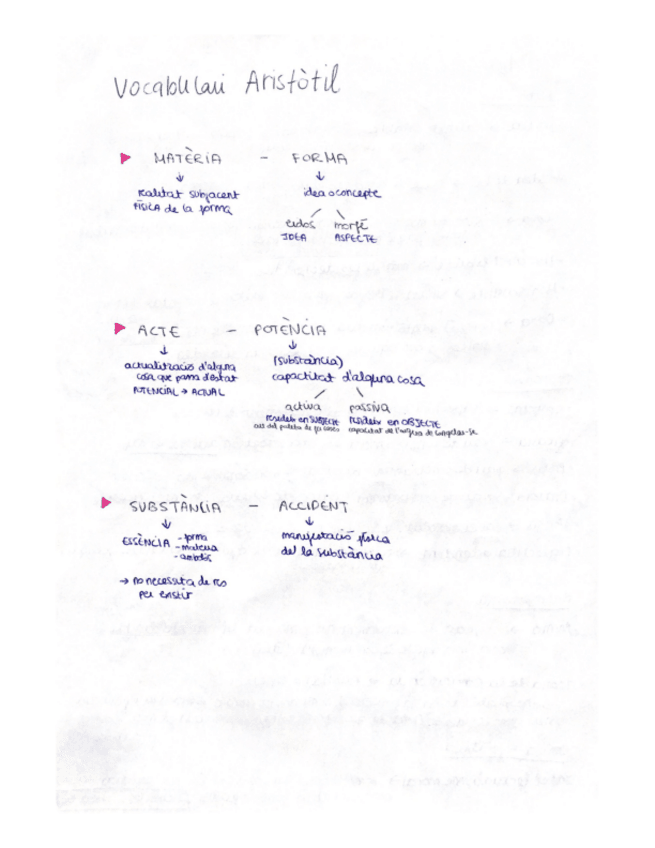 Vocabulari Aristòtil
MATÈRIA - FORMA
realitat subjacent
FÍSICA de la forma
idea o concepte
eidos morfé
IDEA ASPECTE
ACTE - POTÈNCIA
actualització d'alguna
cosa que passa d'estat
POTENCIAL → ACTUAL
(substància)
capacitat d'alguna cosa
activa passiva
resideix en SUBJECTE
resideix en OBJECTE
capacitat de l'aigua de congelar-se
SUBSTÀNCIA - ACCIDENT
ESSÈNCIA - forma
- matèria
- ambdós
→ no necessita de res
per existir
manifestació física
de la substància